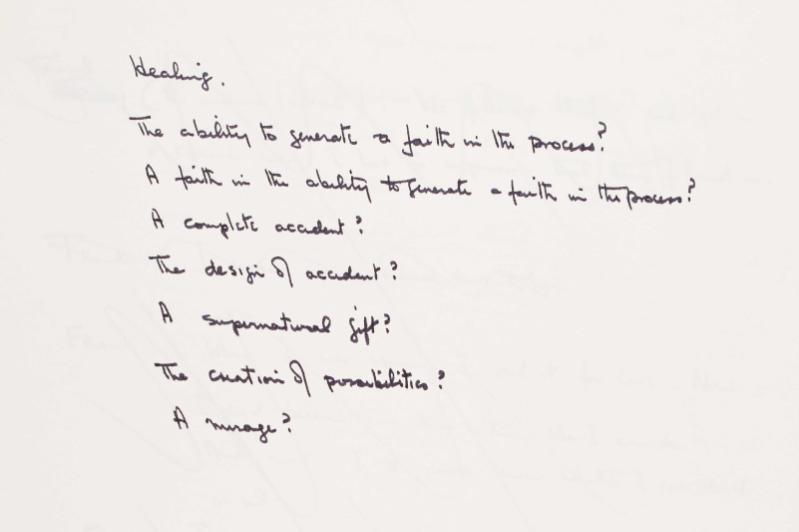 Healing.
The ability to generate a faith in the process?
A faith in the ability to generate a faith in the process?
A complete accident?
The design of accident?
A supernatural gift?
The creation of possibilities?
A mirage?